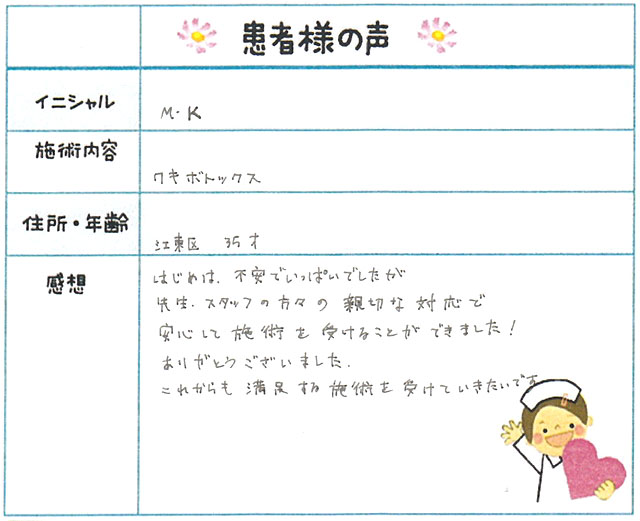 患者様の声
イニシャル
M・K
施術内容
ワキボトックス
住所・年齢
江東区 35才
感想
はじめは、不安でいっぱいでしたが
先生、スタッフの方々の親切な対応で
安心して施術を受けることができました!
ありがとうございました。
これからも満足する施術を受けていきたいです